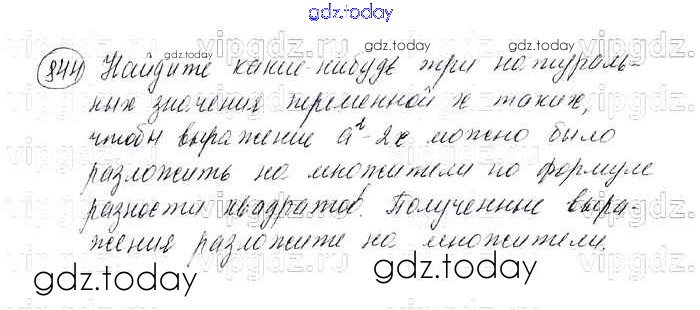 gdz.today
844 Найдите какие-нибудь три натураль-
ных значения переменной x таких,
чтобы выражение a² - 2x можно было
разложить на множители по формуле
разности квадратов. Полученные выра-
жения разложите на множители.
gdz.today
gdz.today